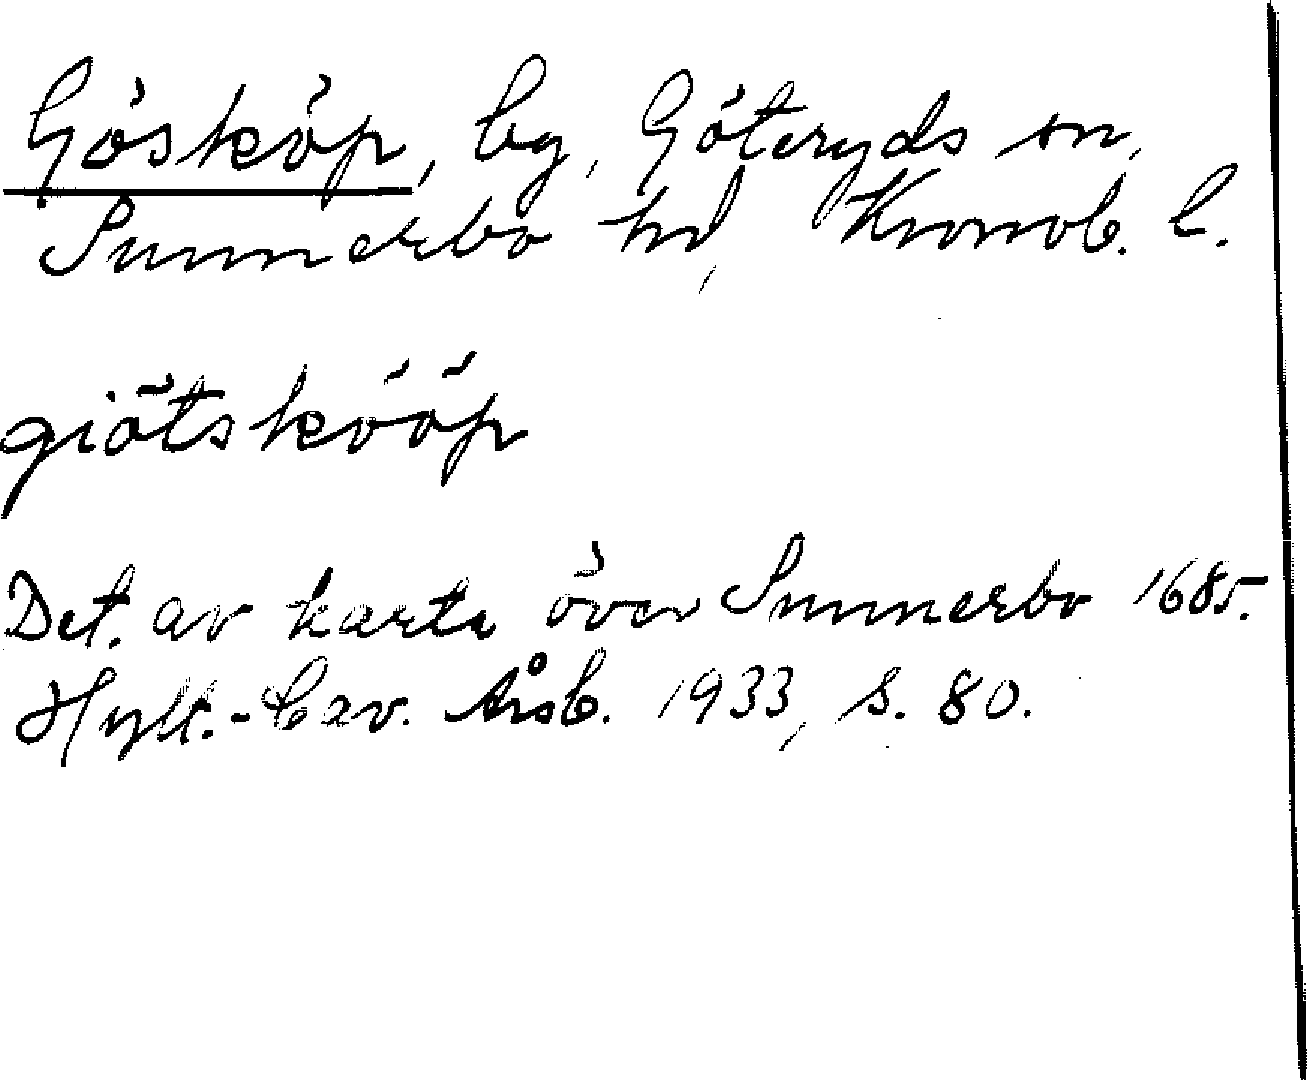 Gösköp, by, Göteryds sn,
Sunnerbo hd, Kronob. l.
giötskööp
Det. av karta över Sunnerbo 1685.
Hylt.-Cav. Årsb. 1933, s. 80.